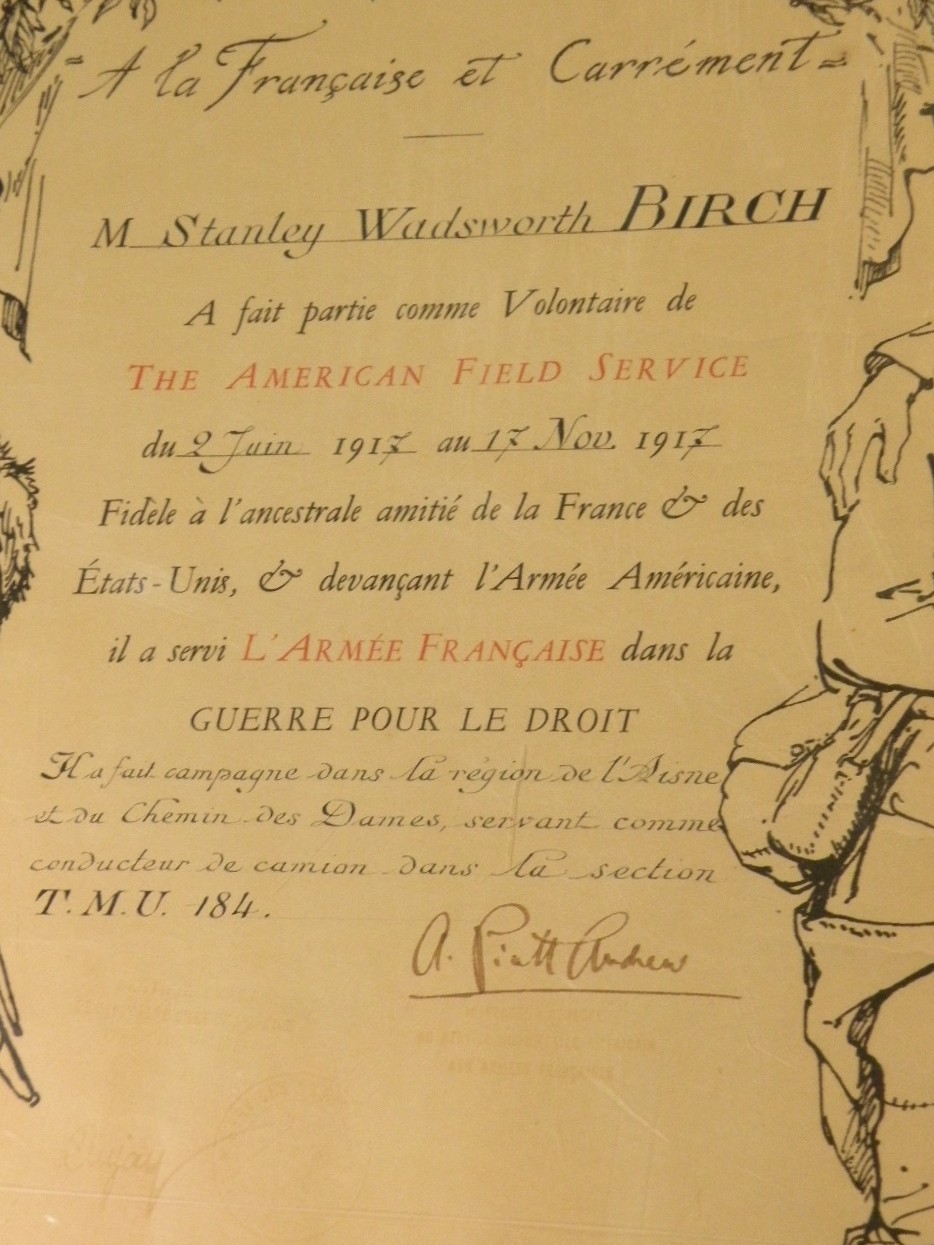 = A la Française et Carrément =
M Stanley Wadsworth BIRCH
A fait partie comme Volontaire de
THE AMERICAN FIELD SERVICE
du 2 Juin 1917 au 17 Nov. 1917
Fidèle à l'ancestrale amitié de la France & des
États-Unis, & devançant l'Armée Américaine,
il a servi L'ARMÉE FRANÇAISE dans la
GUERRE POUR LE DROIT
Il a fait campagne dans la région de l'Aisne
et du Chemin des Dames, servant comme
conducteur de camion dans la section
T.M.U. 184.
A. Piatt Andrew